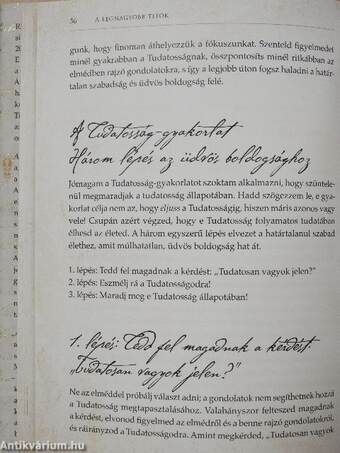 56
A LEGNAGYOBB TITOK
gunk, hogy finoman áthelyezzük a fókuszunkat. Szenteld figyelmedet
minél gyakrabban a Tudatosságnak, összpontosíts minél ritkábban az
elmédben rajzó gondolatokra, s így a legjobb úton fogsz haladni a határ-
talan szabadság és üdvös boldogság felé.
A Tudatosság-gyakorlat
Három lépés az üdvös boldogsághoz
Jómagam a Tudatosság-gyakorlatot szoktam alkalmazni, hogy szüntele-
nül megmaradjak a tudatosság állapotában. Hadd szögezzem le, e gya-
korlat célja nem az, hogy eljuss a Tudatosságig, hiszen máris azonos vagy
vele! Csupán azért végzed, hogy e Tudatosság folyamatos tudatában
élhesd az életed. A három egyszerű lépés elvezet a határtalanul szabad
élethez, amit múlhatatlan, üdvös boldogság hat át.
1. lépés: Tedd fel magadnak a kérdést: „Tudatosan vagyok jelen?”
2. lépés: Eszmélj rá a Tudatosságodra!
3. lépés: Maradj meg e Tudatosság állapotában!
1. lépés: Tedd fel magadnak a kérdést:
„Tudatosan vagyok jelen?”
Ne az elméddel próbálj választ adni; a gondolatok nem segíthetnek hozzá
a Tudatosság megtapasztalásához. Valahányszor felteszed magadnak
a kérdést, elvonod figyelmed az elmédről és a benne rajzó gondolatokról,
és ráirányzod a Tudatosságodra. Amint megkérded, „Tudatosan vagyok
antikvárium.hu